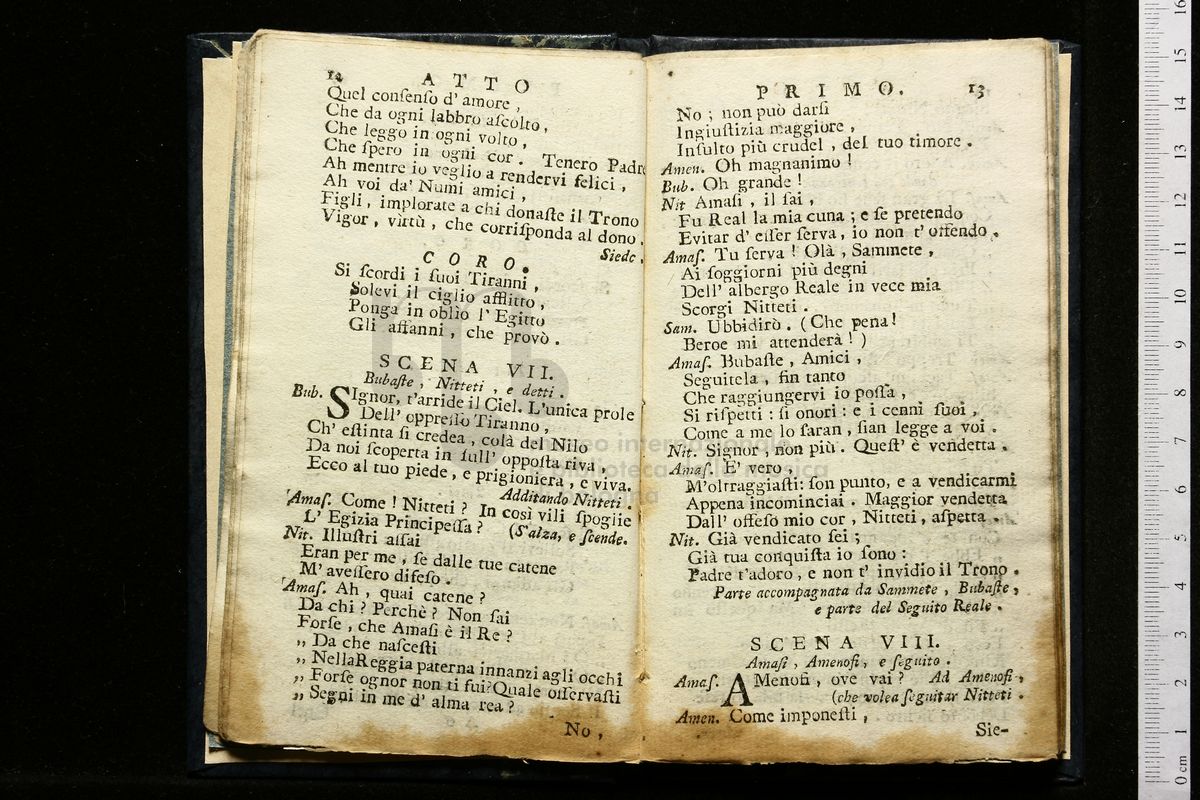 12 ATTO
Quel consenſo d' amore,
Che da ogni labbro aſcolto,
Che leggo in ogni volto,
Che ſpero in ogni cor. Tenero Padre
Ah mentre io veglio a rendervi felici,
Ah voi da' Numi amici,
Figli, implorate a chi donaſte il Trono
Vigor, virtù, che corriſponda al dono.
Siede,
CORO.
Si ſcordi i ſuoi Tiranni,
Solevi il ciglio afflitto,
Ponga in oblìo l' Egitto
Gli affanni, che provò.
SCENA VII.
Bubaſte, Nitteti, e detti.
Bub. SIgnor, t'arride il Ciel. L'unica prole
Dell' oppreſſo Tiranno,
Ch' eſtinta ſi credea, colà del Nilo
Da noi ſcoperta in ſull' oppoſta riva,
Ecco al tuo piede, e prigioniera, e viva.
Additando Nitteti.
Amaſ. Come! Nitteti? In così vili ſpoglie
L' Egizia Principeſſa? (S'alza, e ſcende.
Nit. Illuſtri aſſai
Eran per me, ſe dalle tue catene
M' aveſſero difeſo.
Amaſ. Ah, quai catene?
Da chi? Perchè? Non ſai
Forſe, che Amaſi è il Re?
„ Da che naſceſti
„ NellaReggia paterna innanzi agli occhi
„ Forſe ognor non ti fui? Quale oſſervaſti
„ Segni in me d' alma rea?
No,
PRIMO. 13
No; non può darſi
Ingiuſtizia maggiore,
Inſulto più crudel, del tuo timore.
Amen. Oh magnanimo!
Bub. Oh grande!
Nit Amaſi, il ſai,
Fu Real la mia cuna; e ſe pretendo
Evitar d' eſſer ſerva, io non t' offendo.
Amaſ. Tu ſerva! Olà, Sammete,
Ai ſoggiorni più degni
Dell' albergo Reale in vece mia
Scorgi Nitteti.
Sam. Ubbidirò. (Che pena!
Beroe mi attenderà!)
Amaſ. Bubaſte, Amici,
Seguitela, fin tanto
Che raggiungervi io poſſa,
Si riſpetti: ſi onori: e i cenni ſuoi,
Come a me lo ſaran, ſian legge a voi.
Nit. Signor, non più. Queſt' è vendetta.
Amaſ. E' vero,
M'oltraggiaſti: ſon punto, e a vendicarmi
Appena incominciai. Maggior vendetta
Dall' offeſo mio cor, Nitteti, aſpetta
Nit. Già vendicato ſei;
Già tua conquiſta io ſono:
Padre t'adoro, e non t' invidio il Trono.
Parte accompagnata da Sammete, Bubaſte,
e parte del Seguito Reale.
SCENA VIII.
Amaſi, Amenofi, e ſeguito.
Amaſ. AMenofi, ove vai? Ad Amenofi,
(che volea ſeguitar Nitteti.
Amen. Come imponeſti,
Sie-